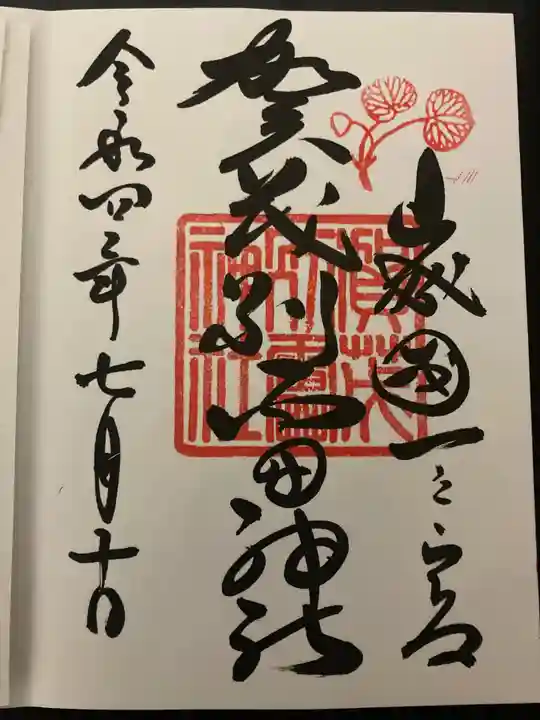 山城國一之宮
賀茂別雷神社
賀茂別雷神社
令和四年七月十日